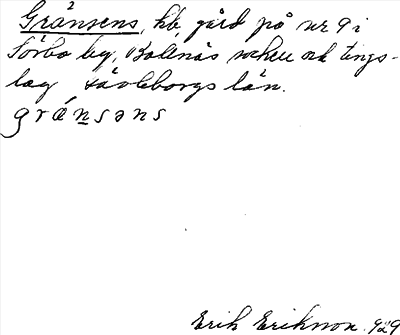 Gränsens, hb, gård på nr 9 i
Sörbo by, Bollnäs socken och tings-
lag Gävleborgs län.
grǽnsəns
Erik Eriksson 929